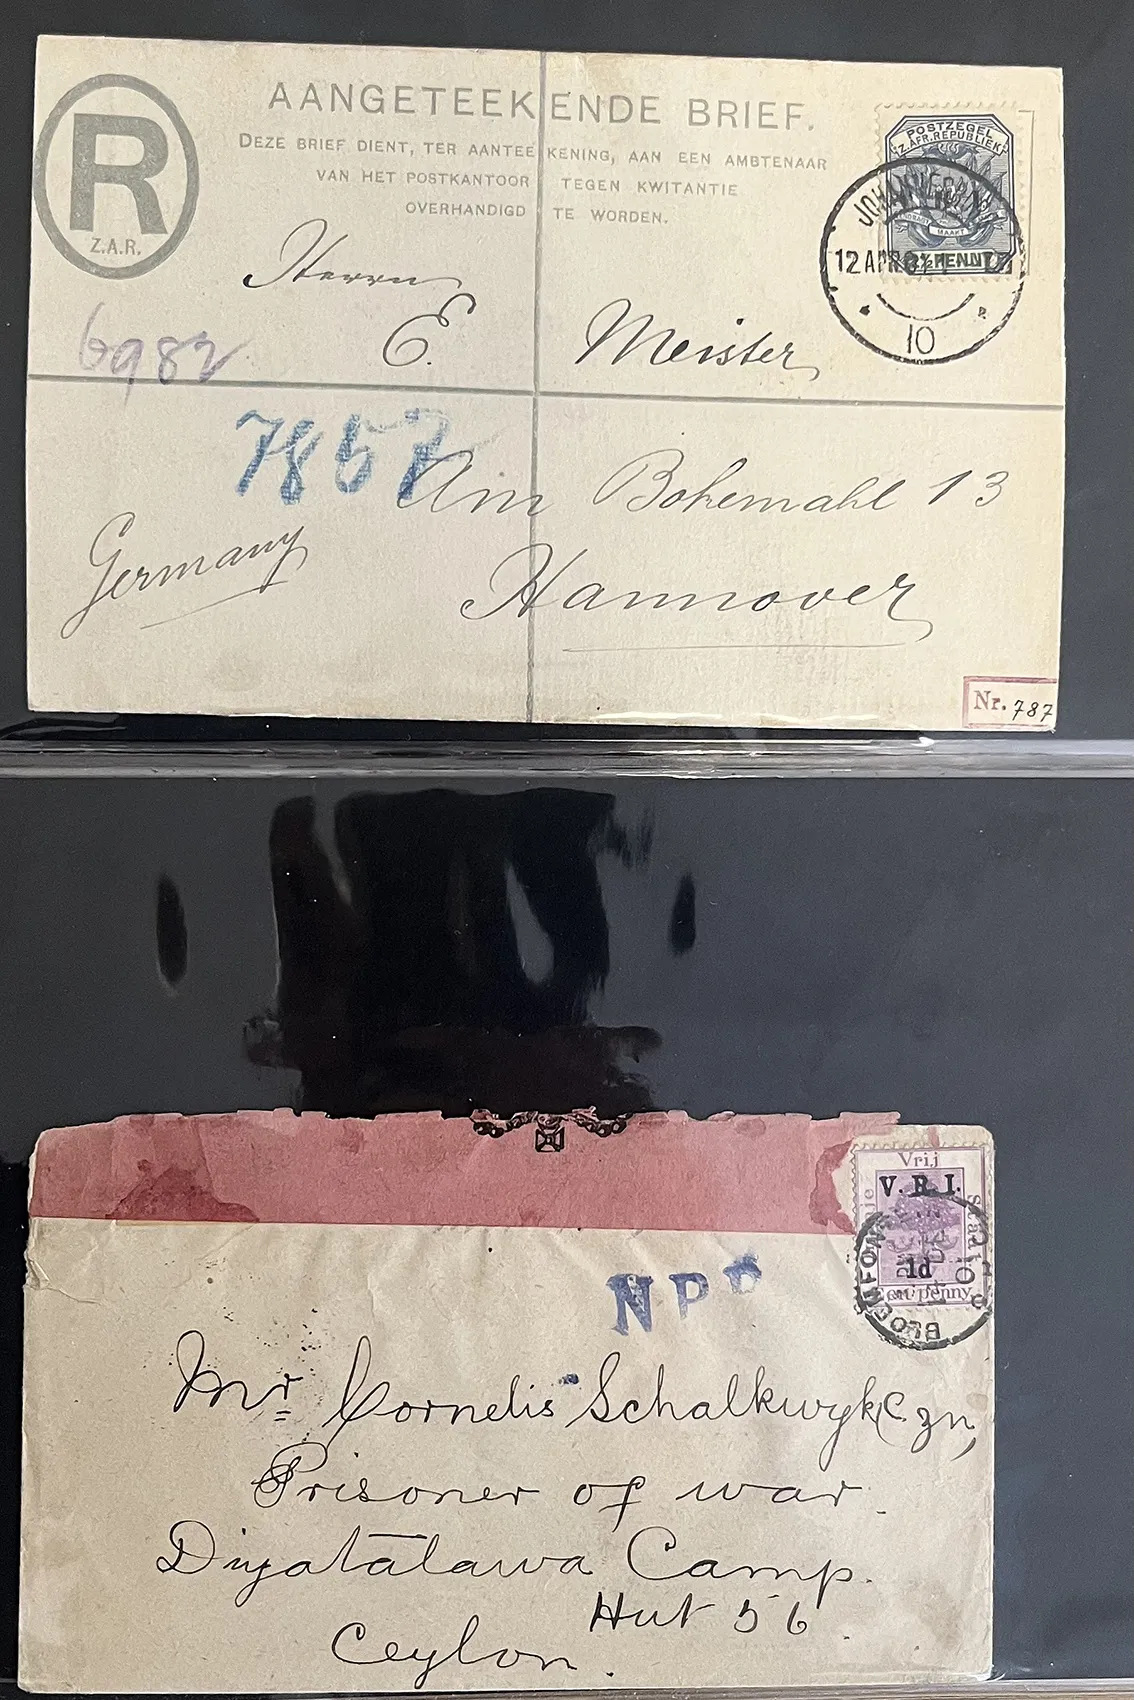 AANGETEEKENDE BRIEF.
DEZE BRIEF DIENT, TER AANTEEKENING, AAN EEN AMBTENAAR
VAN HET POSTKANTOOR TEGEN KWITANTIE
OVERHANDIGD TE WORDEN.
R
Z.A.R.
POSTZEGEL
Z. AFR. REPUBLIEK
MAAKT
PENNY
12 APR
10
Herrn
E. Meister
6982
7857
Am Bohemahl 13
Germany
Hannover
Nr. 787
Vrij
V.R.I.
Staat
1d
Een penny
BLOEMFON
NP
Mr Cornelis Schalkwyk C. zn,
Prisoner of war.
Diyatalawa Camp.
Hut 56.
Ceylon.